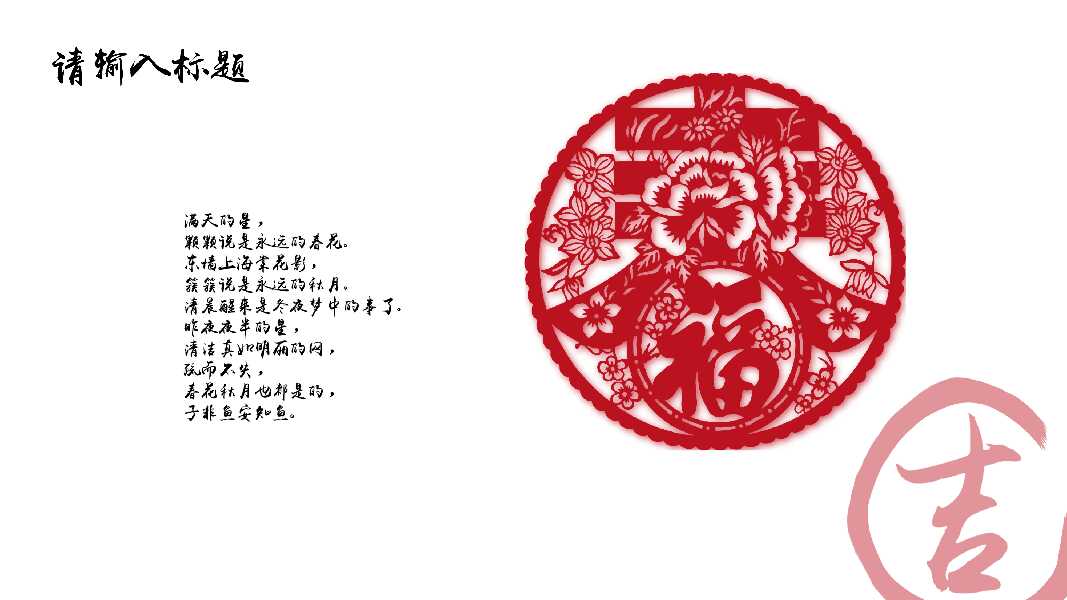 请输入标题
满天的星，
颗颗说是永远的春花。
东墙上海棠花影，
簇簇说是永远的秋月。
清晨醒来是冬夜梦中的事了。
昨夜夜半的星，
清洁真如明丽的网，
疏而不失，
春花秋月也都是的，
子非鱼安知鱼。
春
福
吉